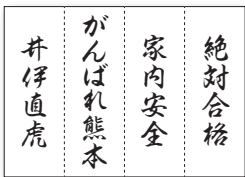 絶対合格
家内安全
がんばれ熊本
井伊直虎